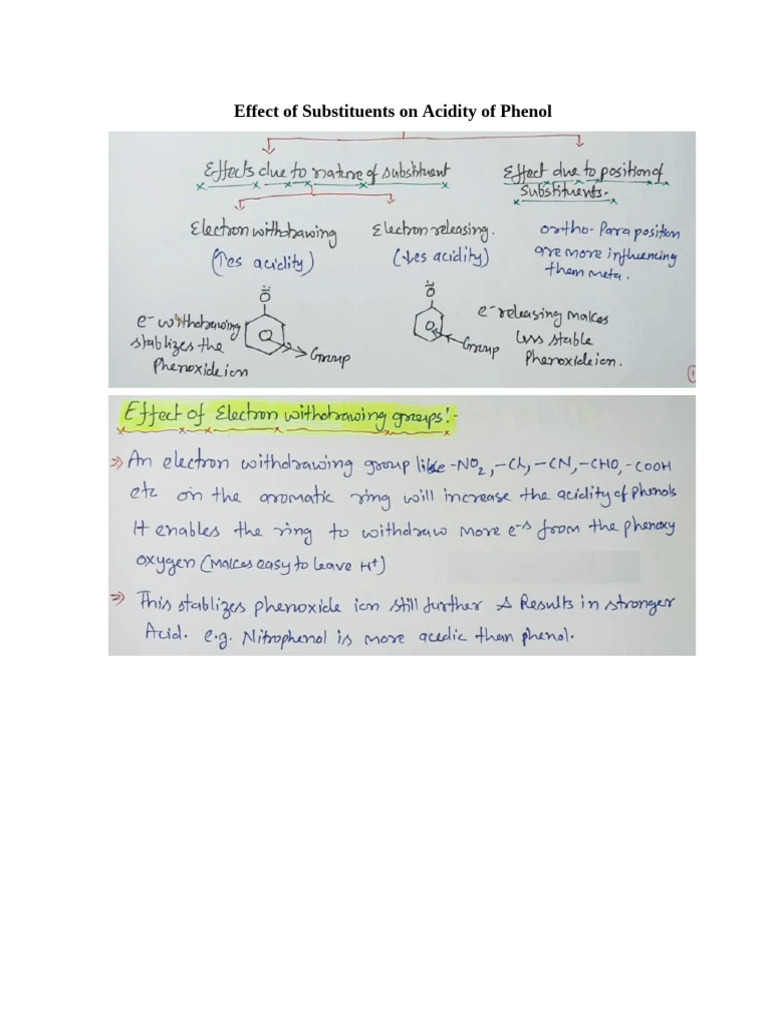 Effect of Substituents on Acidity of Phenol
Effects due to nature of substituent
Effect due to position of
Substituents.
Electron withdrawing
(↑es acidity)
Electron releasing.
(↓es acidity)
ortho-Para position
are more influencing
them meta.
Ö
e- withdrawing
stablizes the
Phenoxide ion
Group
Ö
Group
e- releasing makes
less stable
Phenoxide ion.
Effect of Electron withdrawing groups!-
⇒ An electron withdrawing group like -NO2, -Cl, -CN, -CHO, -COOH
etc on the aromatic ring will increase the acidity of Phenols
It enables the ring to withdraw more e-s from the phenoxy
oxygen (Makes easy to leave H+)
⇒ This stablizes phenoxide ion still further & Results in stronger
Acid. e.g. Nitrophenol is more acedic than phenol.